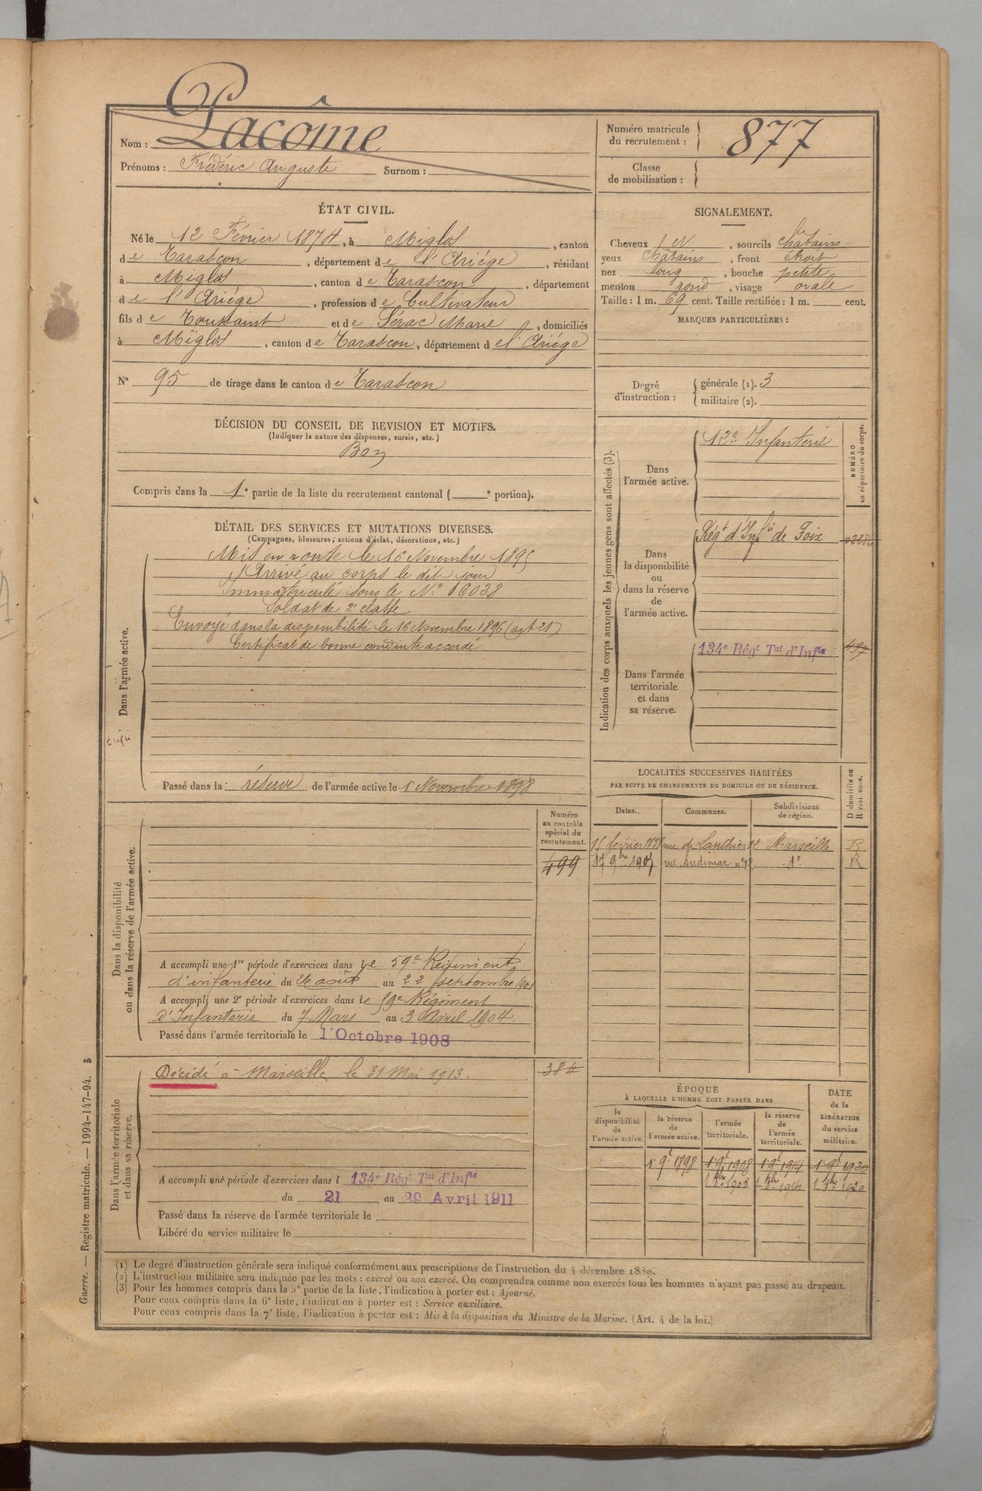 Nom : Lacôme
Prénoms : Frédéric Auguste Surnom :
Numéro matricule du recrutement : 877
Classe de mobilisation :
ÉTAT CIVIL.
Né le 12 Février 1874, à Miglos, canton
de Tarascon, département de l'Ariége, résidant
à Miglos, canton de Tarascon, département
de l'Ariége, profession de Cultivateur
fils de Toussaint et de Sérac Marie, domiciliés
à Miglos, canton de Tarascon, département de l'Ariége
N° 95 de tirage dans le canton de Tarascon
SIGNALEMENT.
Cheveux et, sourcils chatains
yeux chatains, front étroit
nez long, bouche petite
menton rond, visage ovale
Taille : 1 m. 69 cent. Taille rectifiée : 1 m. cent.
MARQUES PARTICULIÈRES :
Degré d'instruction : générale (1). 3
militaire (2).
DÉCISION DU CONSEIL DE REVISION ET MOTIFS.
(Indiquer la nature des dispenses, sursis, etc.)
Bon
Compris dans la 1e partie de la liste du recrutement cantonal ( e portion).
DÉTAIL DES SERVICES ET MUTATIONS DIVERSES.
(Campagnes, blessures, actions d'éclat, décorations, etc.)
Dans l'armée active.
Mis en route le 16 Novembre 1895
Arrivé au corps le dit jour
Immatriculé sous le N° 16038
Soldat de 2e classe
Envoyé dans la disponibilité le 16 Novembre 1896 (art 21)
Certificat de bonne conduite accordé
Passé dans la réserve de l'armée active le 1 Novembre 1898
Indication des corps auxquels les jeunes gens sont affectés (3).
NUMÉRO au répertoire du corps.
Dans l'armée active.
12e Infanterie
Dans la disponibilité ou dans la réserve de l'armée active.
Régt d'Infie de Foix
Dans l'armée territoriale et dans sa réserve.
134e Régt Tal d'Infie
LOCALITÉS SUCCESSIVES HABITÉES
PAR SUITE DE CHANGEMENTS DE DOMICILE OU DE RÉSIDENCE.
D domicile ou R résidence.
Dates. Communes. Subdivisions de région.
15 février rue de Marseille R
17 9bre rue de R
Dans la disponibilité ou dans la réserve de l'armée active.
Numéro au contrôle spécial du recrutement.
499
A accompli une 1re période d'exercices dans le 59e Régiment
d'infanterie du 26 août au 22 septembre
A accompli une 2e période d'exercices dans le Régiment
D'Infanterie du 7 Mars au 3 Avril 1904
Passé dans l'armée territoriale le 1 Octobre 1908
Dans l'armée territoriale et dans sa réserve.
Décédé à Marseille le 31 Mai 1913. 384
A accompli une période d'exercices dans l 134e Régt Tal d'Infie
du 21 au 29 Avril 1911
Passé dans la réserve de l'armée territoriale le
Libéré du service militaire le
ÉPOQUE
À LAQUELLE L'HOMME DOIT PASSER DANS
la disponibilité de l'armée active. la réserve de l'armée active. l'armée territoriale. la réserve de l'armée territoriale.
DATE de la LIBÉRATION du service militaire.
1 9bre 1898 1 9bre 1908 1 9bre 1914 1 9bre 1920
(1) Le degré d'instruction générale sera indiqué conformément aux prescriptions de l'instruction du 4 décembre 1889.
(2) L'instruction militaire sera indiquée par les mots : exercé ou non exercé. On comprendra comme non exercés tous les hommes n'ayant pas passé au drapeau.
(3) Pour les hommes compris dans la 5e partie de la liste, l'indication à porter est : Ajourné.
Pour ceux compris dans la 6e liste, l'indication à porter est : Service auxiliaire.
Pour ceux compris dans la 7e liste, l'indication à porter est : Mis à la disposition du Ministre de la Marine. (Art. 4 de la loi.)
Guerre. — Registre matricule. — 1994-147-94.